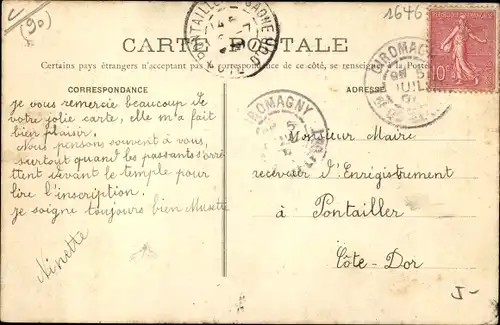 (90)
1646
PONTAILLER
CARTE POSTALE
Certains pays étrangers n'acceptant pas la correspondance de ce côté, se renseigner à la Poste
CORRESPONDANCE
ADRESSE
GIROMAGNY
GIROMAGNY
10c
je vous remercie beaucoup de
votre jolie carte, elle m'a fait
bien plaisir.
Nous pensons souvent à vous,
surtout quand les passants s'arrê-
ttent devant le temple pour
lire l'inscription.
je soigne toujours bien Musette
Ninette
Monsieur Maire
receveur d'Enregistrement
à Pontailler
Côte-Dor
5-